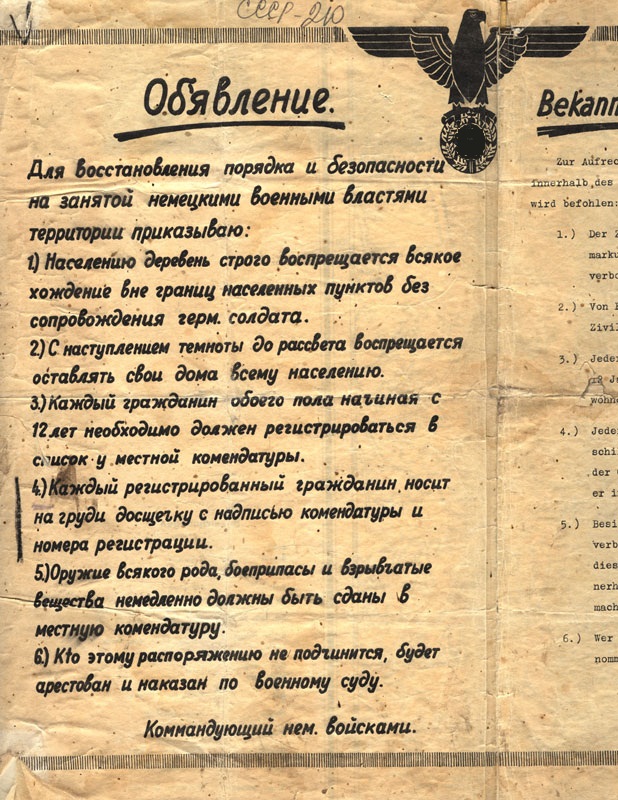 СССР-210
Обявление.
Для восстановления порядка и безопасности
на занятой немецкими военными властями
территории приказываю:
1.) Населению деревень строго воспрещается всякое
хождение вне границ населенных пунктов без
сопровождения герм. солдата.
2.) С наступлением темноты до рассвета воспрещается
оставлять свои дома всему населению.
3.) Каждый гражданин обоего пола начиная с
12 лет необходимо должен регистрироваться в
список у местной комендатуры.
4.) Каждый регистрированный гражданин носит
на груди досщечку с надписью комендатуры и
номера регистрации.
5.) Оружие всякого рода, боеприпасы и взрывчатые
вещества немедленно должны быть сданы в
местную комендатуру.
6.) Кто этому распоряжению не подчинится, будет
арестован и наказан по военному суду.
Коммандующий нем. войсками.
Bekann
Zur Aufrec
innerhalb des
wird befohlen:
1.) Der Z
marku
verbo
2.) Von E
Zivil
3.) Jeder
Je
wohne
4.) Jeder
schi
der
er i
5.) Besi
verb
dies
nerh
mach
6.) Wer
nomm